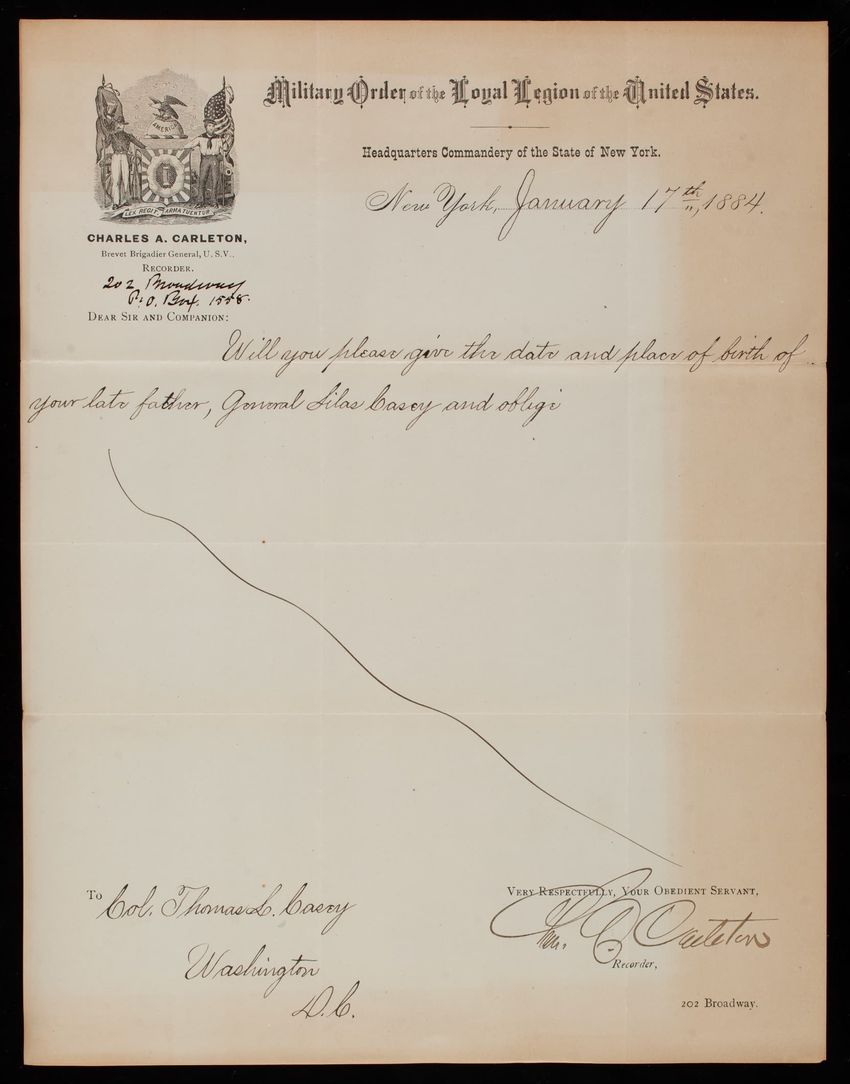 Military Order of the Loyal Legion of the United States.
Headquarters Commandery of the State of New York.
New York, January 17th, 1884.
AMERICA
LEX REGIT ARMA TUENTUR
CHARLES A. CARLETON,
Brevet Brigadier General, U. S. V.,
RECORDER.
202 Broadway
P. O. Box 1558.
DEAR SIR AND COMPANION:
Will you please give the date and place of birth of
your late father, General Silas Casey and oblige
VERY RESPECTFULLY, YOUR OBEDIENT SERVANT,
Chas. A. Carleton
Recorder,
To Col. Thomas L. Casey
Washington
D.C.
202 Broadway.